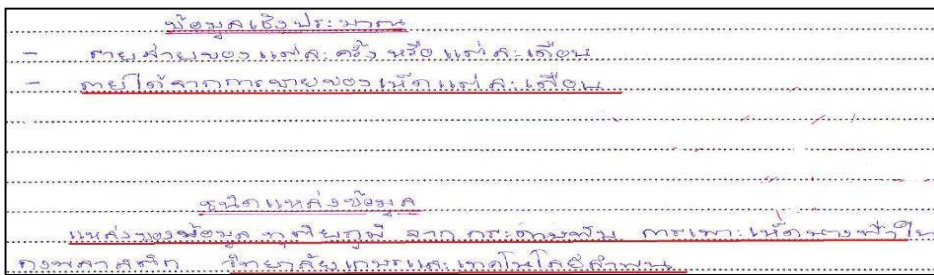 ข้อมูลเชิงปริมาณ
- รายจ่ายของแต่ละครั้ง หรือ แต่ละเดือน
- รายได้จากการขายของเห็ดแต่ละเดือน
ชนิดแหล่งข้อมูล
แหล่งของข้อมูล ทุติยภูมิ จาก กระดาษพับ การเพาะเห็ดนางฟ้าใน
ถุงพลาสติก วิทยาลัยเกษตรและเทคโนโลยีลำพูน